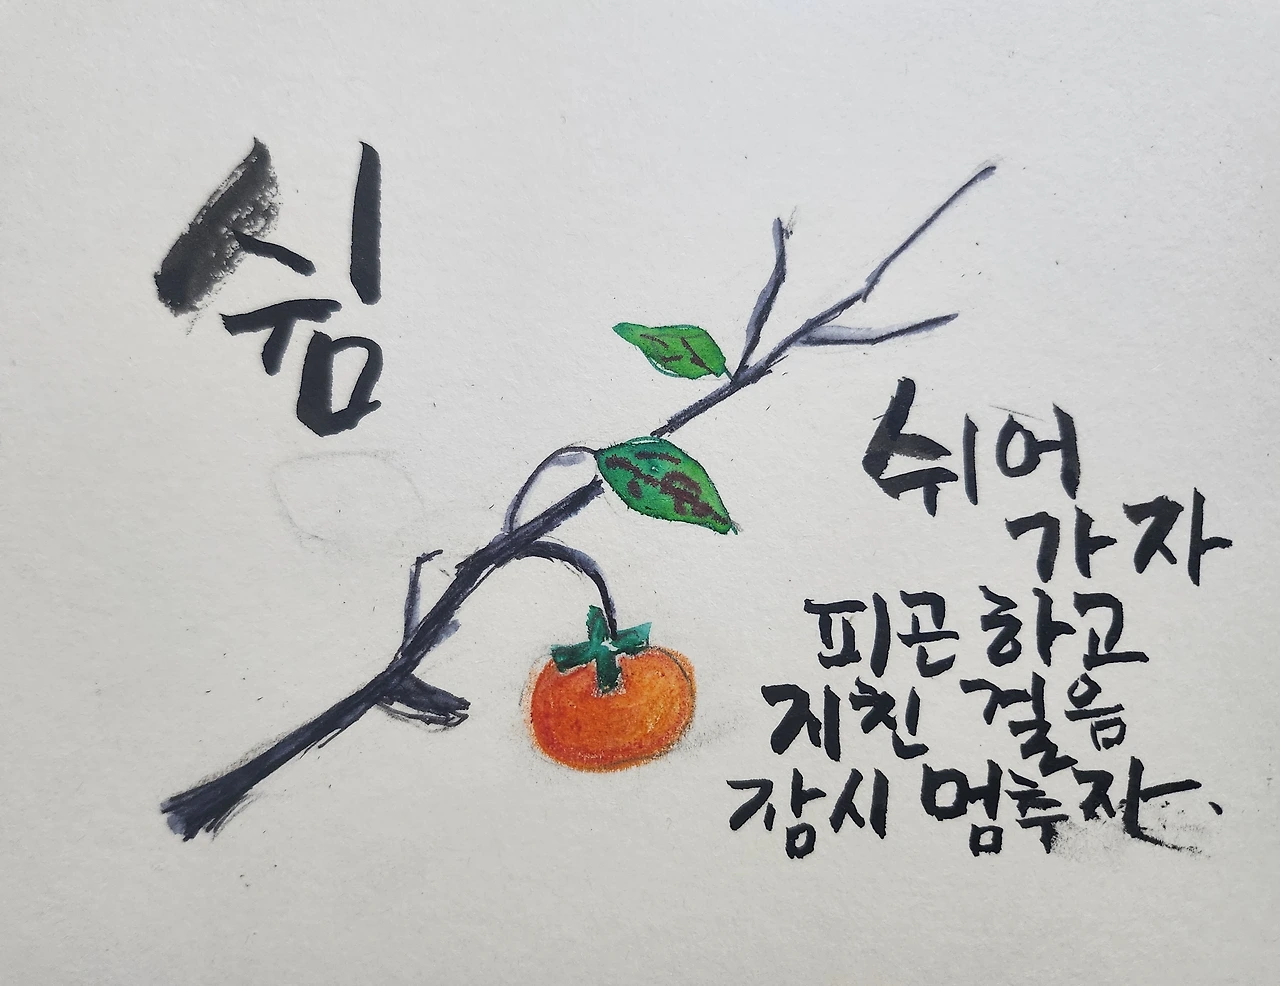 쉼
쉬어
가자
피곤 하고
지친 걸음
잠시 멈추자.